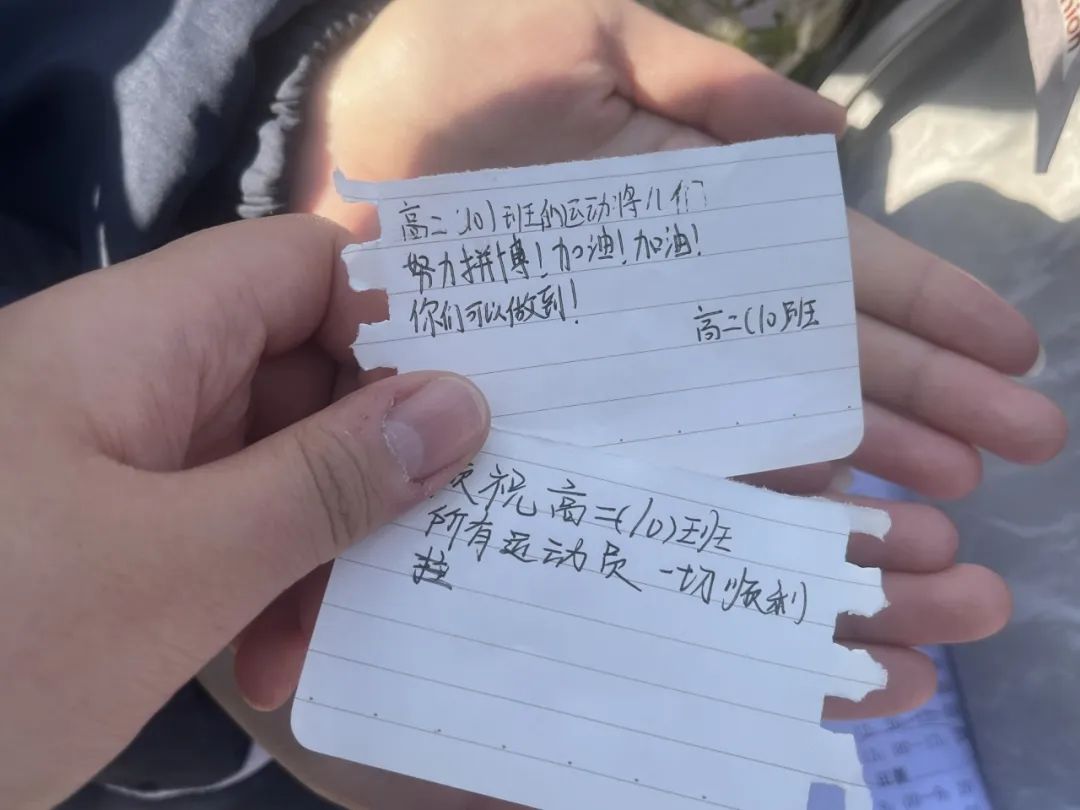 高二(10)班的运动将儿们
努力拼博！加油！加油！
你们可以做到！
高二(10)班
祝高二(10)班
所有运动员一切顺利